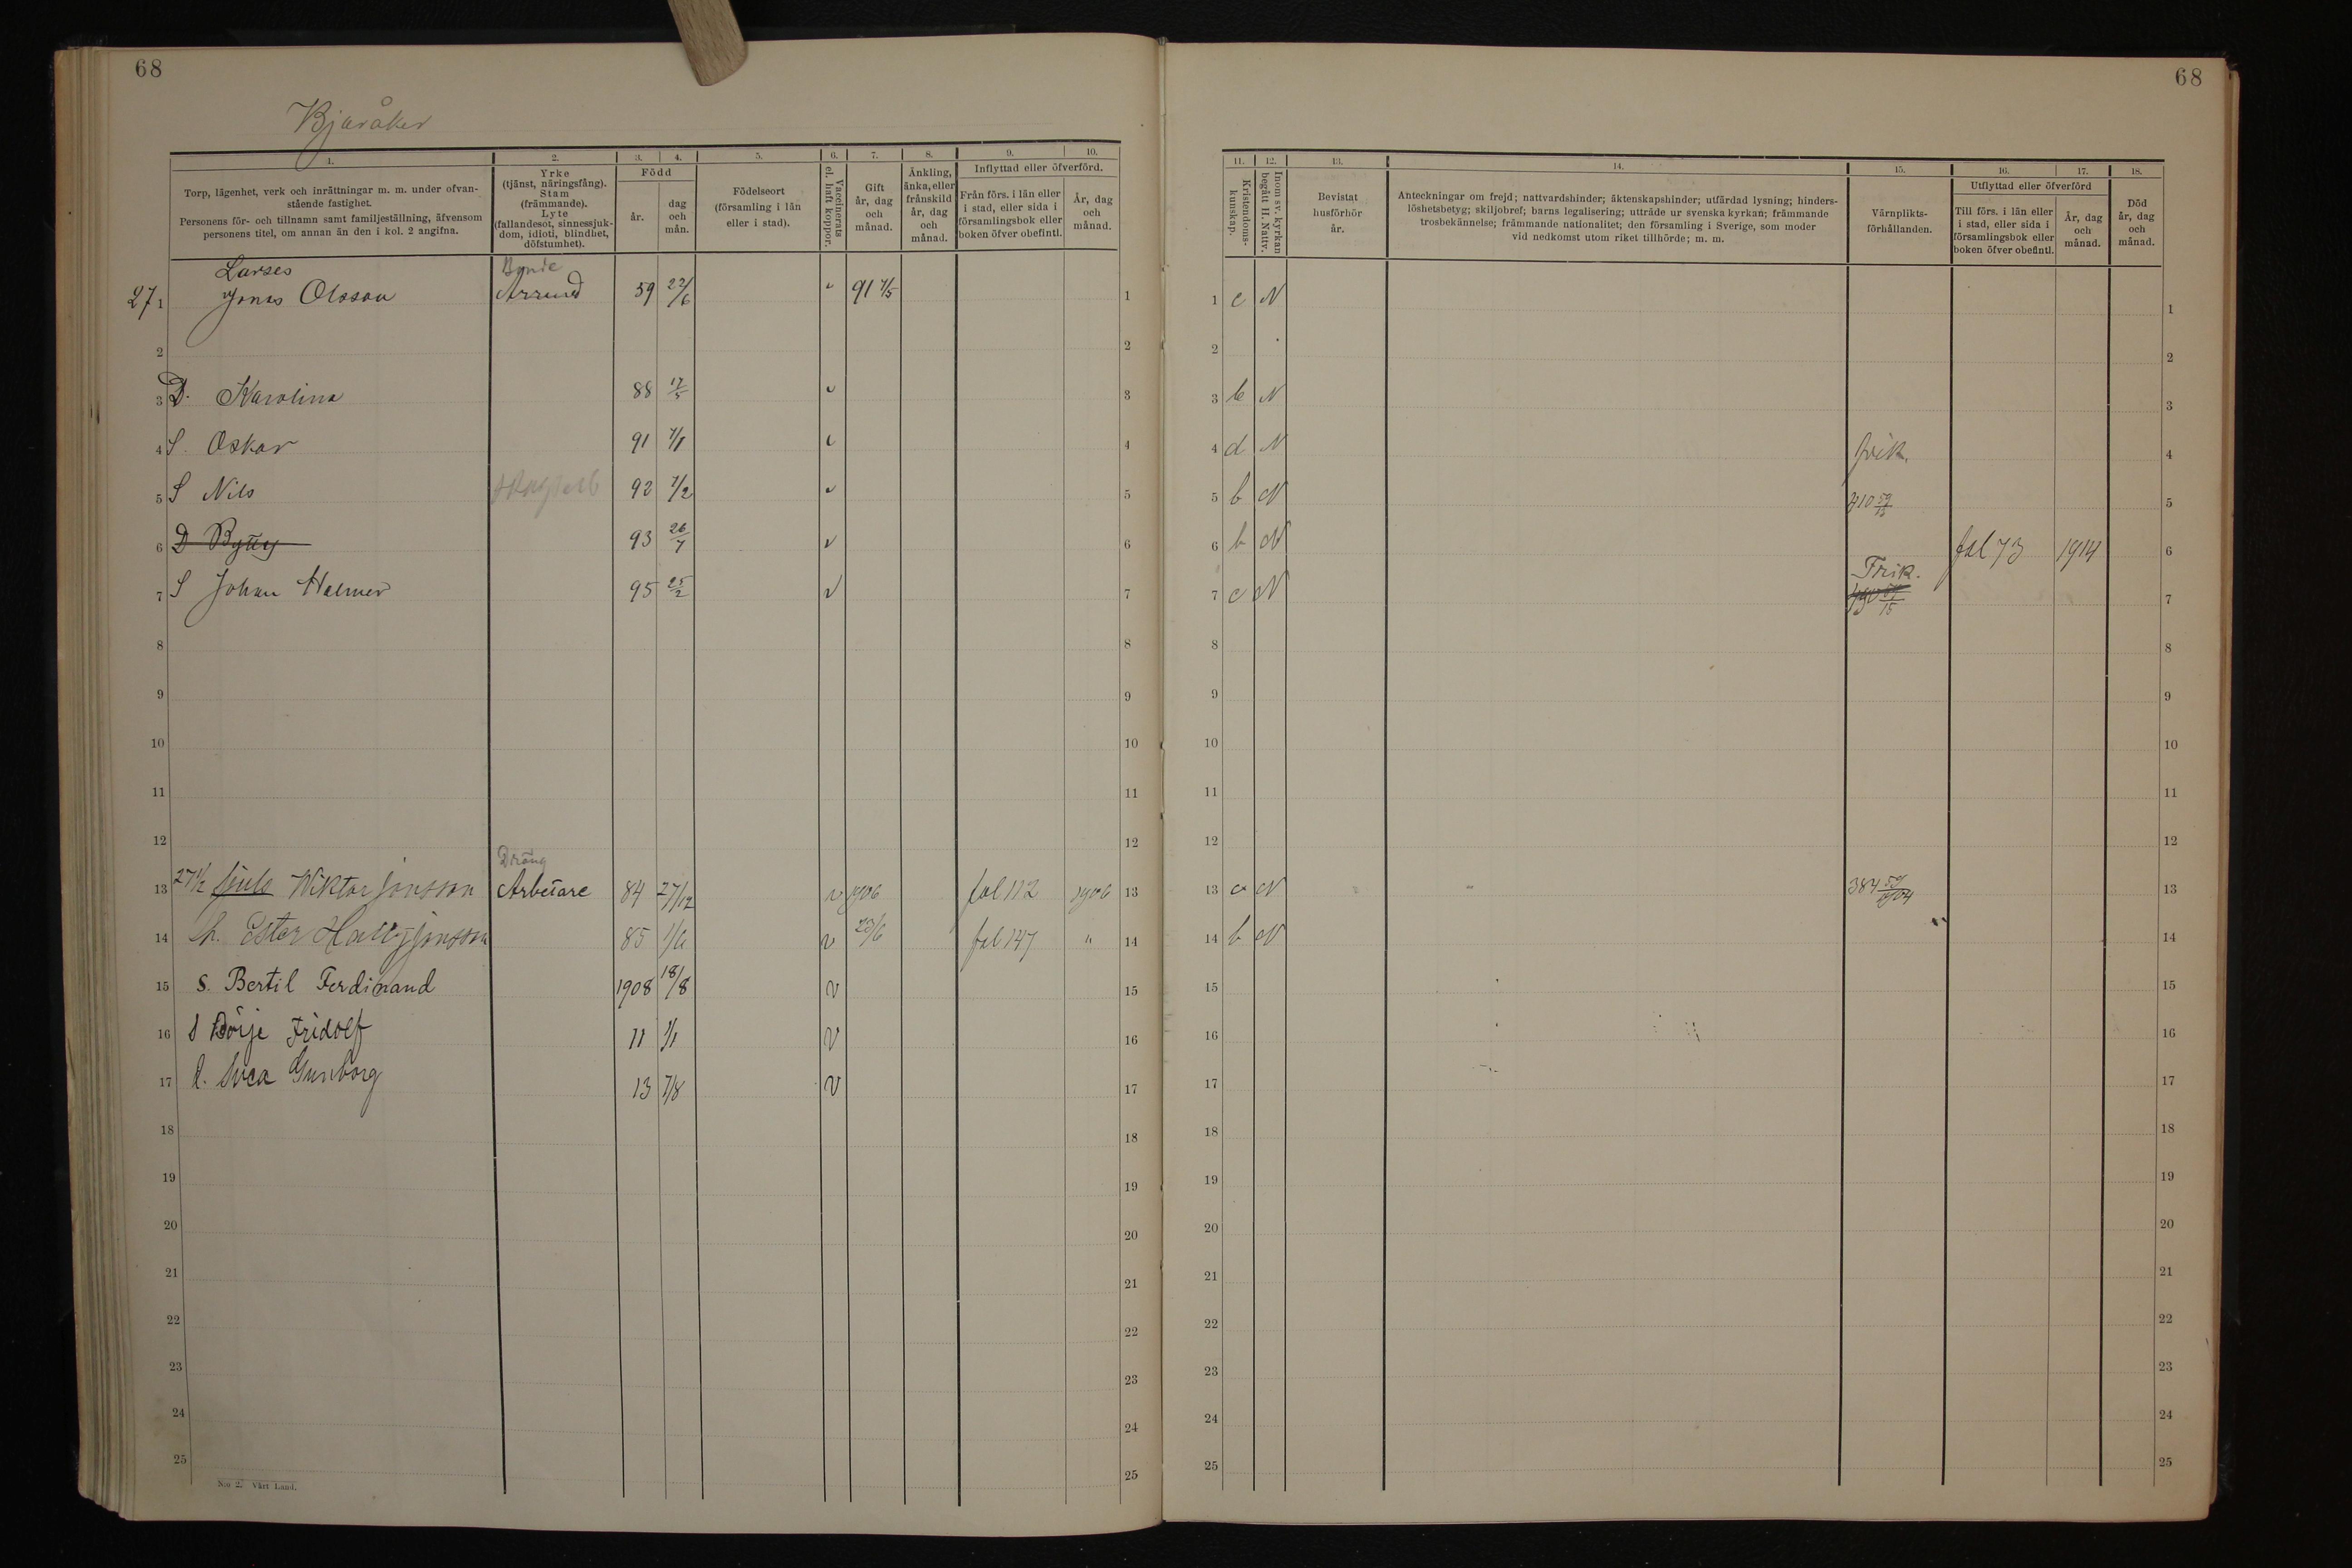 68
68
Bjåråker
1. 2. 3. 4. 5. 6. 7. 8. 9. 10.
Torp, lägenhet, verk och inrättningar m. m. under ofvan-
stående fastighet.
Personens för- och tillnamn samt familjeställning, äfvensom
personens titel, om annan än den i kol. 2 angifna.
Yrke
(tjänst, näringsfång).
Stam
(främmande).
Lyte
(fallandesot, sinnessjuk-
dom, idioti, blindhet,
döfstumhet).
Född
år.
dag
och
mån.
Födelseort
(församling i län
eller i stad).
Vaccinerats
el. haft koppor.
Gift
år, dag
och
månad.
Änkling,
änka, eller
frånskild
år, dag
och
månad.
Inflyttad eller öfverförd.
Från förs. i län eller
i stad, eller sida i
församlingsbok eller
boken öfver obefintl.
År, dag
och
månad.
11. 12. 13. 14. 15. 16. 17. 18.
Kristendoms-
kunskap.
Inom sv. kyrkan
begått H. Nattv.
Bevistat
husförhör
år.
Anteckningar om frejd; nattvardshinder; äktenskapshinder; utfärdad lysning; hinders-
löshetsbetyg; skiljobref; barns legalisering; utträde ur svenska kyrkan; främmande
trosbekännelse; främmande nationalitet; den församling i Sverige, som moder
vid nedkomst utom riket tillhörde; m. m.
Värnplikts-
förhållanden.
Utflyttad eller öfverförd
Till förs. i län eller
i stad, eller sida i
församlingsbok eller
boken öfver obefintl.
År, dag
och
månad.
Död
år, dag
och
månad.
Larses Bonde
27 1 Jonas Olsson 59 22/6 91 1 1 c N 1
2 2 2 2
3 D. Karolina 88 17/5 3 3 b N 3
4 S. Oskar 91 4 4 d N Frik. 4
5 S Nils 92 1/2 5 5 b N 5
6 D 93 26/7 v 6 6 b N fol 73 1914 6
Frik.
7 S Johan Halmer 95 25/2 v 7 7 c N 7
8 8 8 8
9 9 9 9
10 10 10 10
11 11 11 11
12 12 12 12
Dräng
13 27 1/2 Wiktor Jonsson Arbetare 84 27/12 v 1906 fol 112 1906 13 13 a N 384 13
14 h. Ester Jonsson 85 1/6 v 23/6 fol 147 " 14 14 b N 14
15 S. Bertil Ferdinand 1908 18/8 v 15 15 15
16 S Börje Fridolf 11 1/1 v 16 16 16
17 d. Svea Gunborg 13 7/8 v 17 17 17
18 18 18 18
19 19 19 19
20 20 20 20
21 21 21 21
22 22 22 22
23 23 23 23
24 24 24 24
25 25 25 25
N:o 2. Vårt Land.